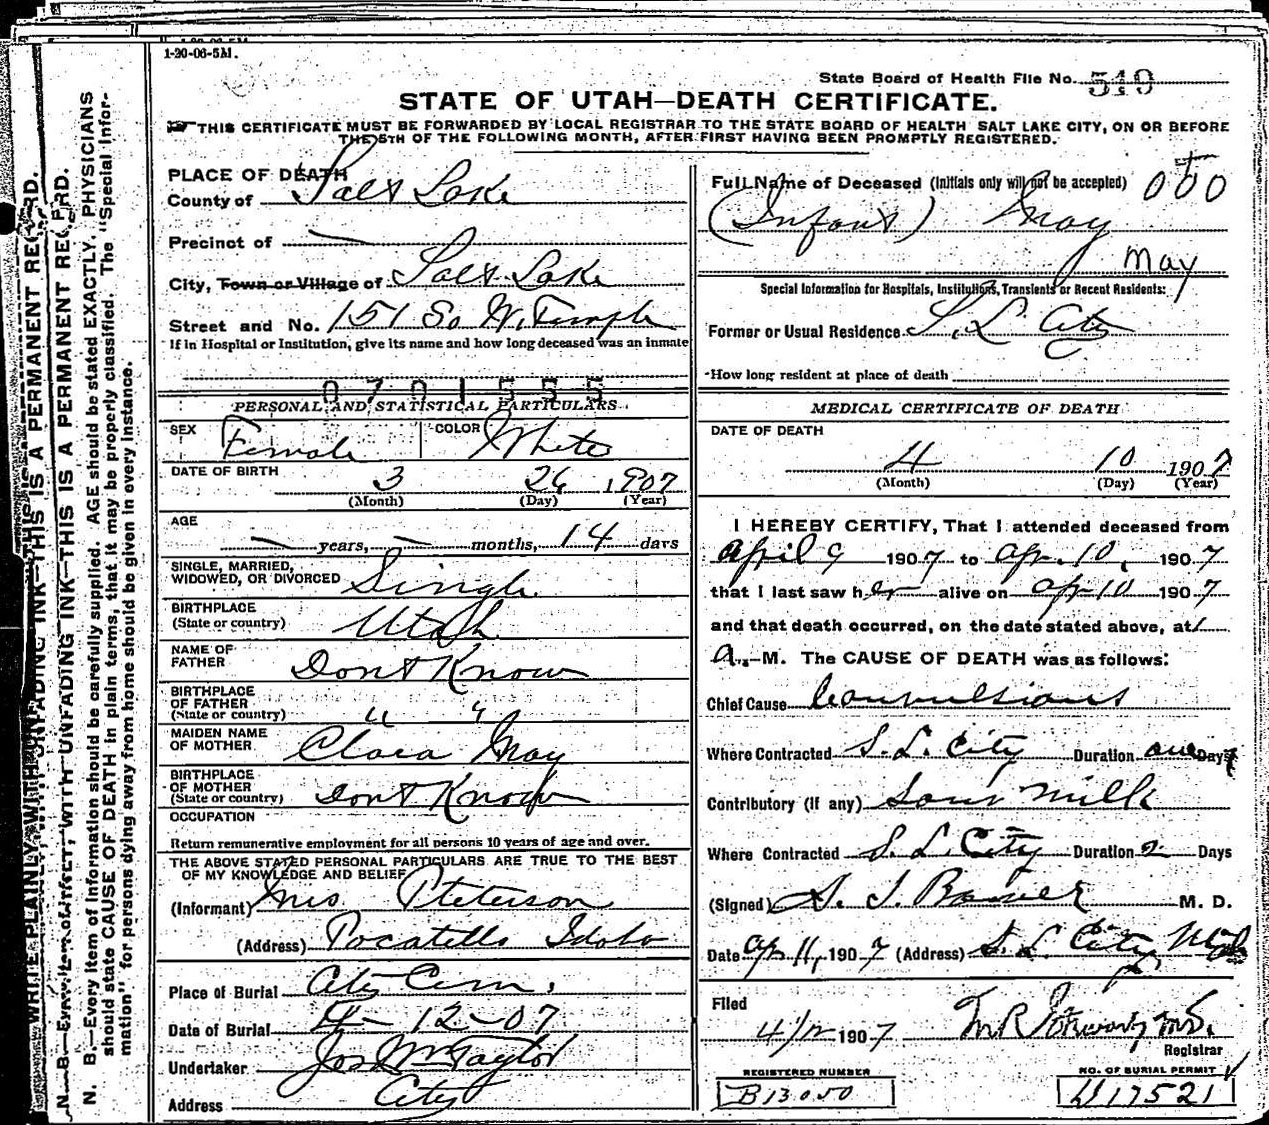 1-20-06-5M.
State Board of Health File No. 519
STATE OF UTAH—DEATH CERTIFICATE.
THIS CERTIFICATE MUST BE FORWARDED BY LOCAL REGISTRAR TO THE STATE BOARD OF HEALTH SALT LAKE CITY, ON OR BEFORE
THE 5TH OF THE FOLLOWING MONTH, AFTER FIRST HAVING BEEN PROMPTLY REGISTERED.
WRITE PLAINLY, WITH UNFADING INK—THIS IS A PERMANENT RECORD.
WITH UNFADING INK—THIS IS A PERMANENT RECORD.
N. B.—Every item of information should be carefully supplied. AGE should be stated EXACTLY. PHYSICIANS
should state CAUSE OF DEATH in plain terms, that it may be properly classified. The "Special Infor-
mation" for persons dying away from home should be given in every instance.
PLACE OF DEATH
County of Salt Lake
Precinct of —
City, Town or Village of Salt Lake
Street and No. 151 So W. Temple
If in Hospital or Institution, give its name and how long deceased was an inmate
0701555
PERSONAL AND STATISTICAL PARTICULARS
SEX Female COLOR White
DATE OF BIRTH 3 26 1907
(Month) (Day) (Year)
AGE — years, — months, 14 days
SINGLE, MARRIED,
WIDOWED, OR DIVORCED Single
BIRTHPLACE
(State or country) Utah
NAME OF
FATHER Dont Know
BIRTHPLACE
OF FATHER
(State or country) " "
MAIDEN NAME
OF MOTHER Clara May
BIRTHPLACE
OF MOTHER
(State or country) Dont Know
OCCUPATION
Return remunerative employment for all persons 10 years of age and over.
THE ABOVE STATED PERSONAL PARTICULARS ARE TRUE TO THE BEST
OF MY KNOWLEDGE AND BELIEF
(Informant) Mrs Pteterson
(Address) Pocatello Idaho
Place of Burial City Cem.
Date of Burial 4-12-07
Undertaker Jos Wm Taylor
Address City
Full Name of Deceased (Initials only will not be accepted) 000
(Infant) May
May
Special Information for Hospitals, Institutions, Transients or Recent Residents:
Former or Usual Residence S. L. City
How long resident at place of death
MEDICAL CERTIFICATE OF DEATH
DATE OF DEATH
4 10 1907
(Month) (Day) (Year)
I HEREBY CERTIFY, That I attended deceased from
April 9 1907 to Apr. 10, 1907
that I last saw her alive on Apr 10 1907
and that death occurred, on the date stated above, at 1
A.—M. The CAUSE OF DEATH was as follows:
Chief Cause Convulsions
Where Contracted S. L. City Duration one Days
Contributory (if any) Sour Milk
Where Contracted S. L. City Duration 2 Days
(Signed) M. D.
Date Apr 11, 1907 (Address) S. L. City Utah
Filed
4/12 1907
Registrar
REGISTERED NUMBER
B13050
NO. OF BURIAL PERMIT
D17521